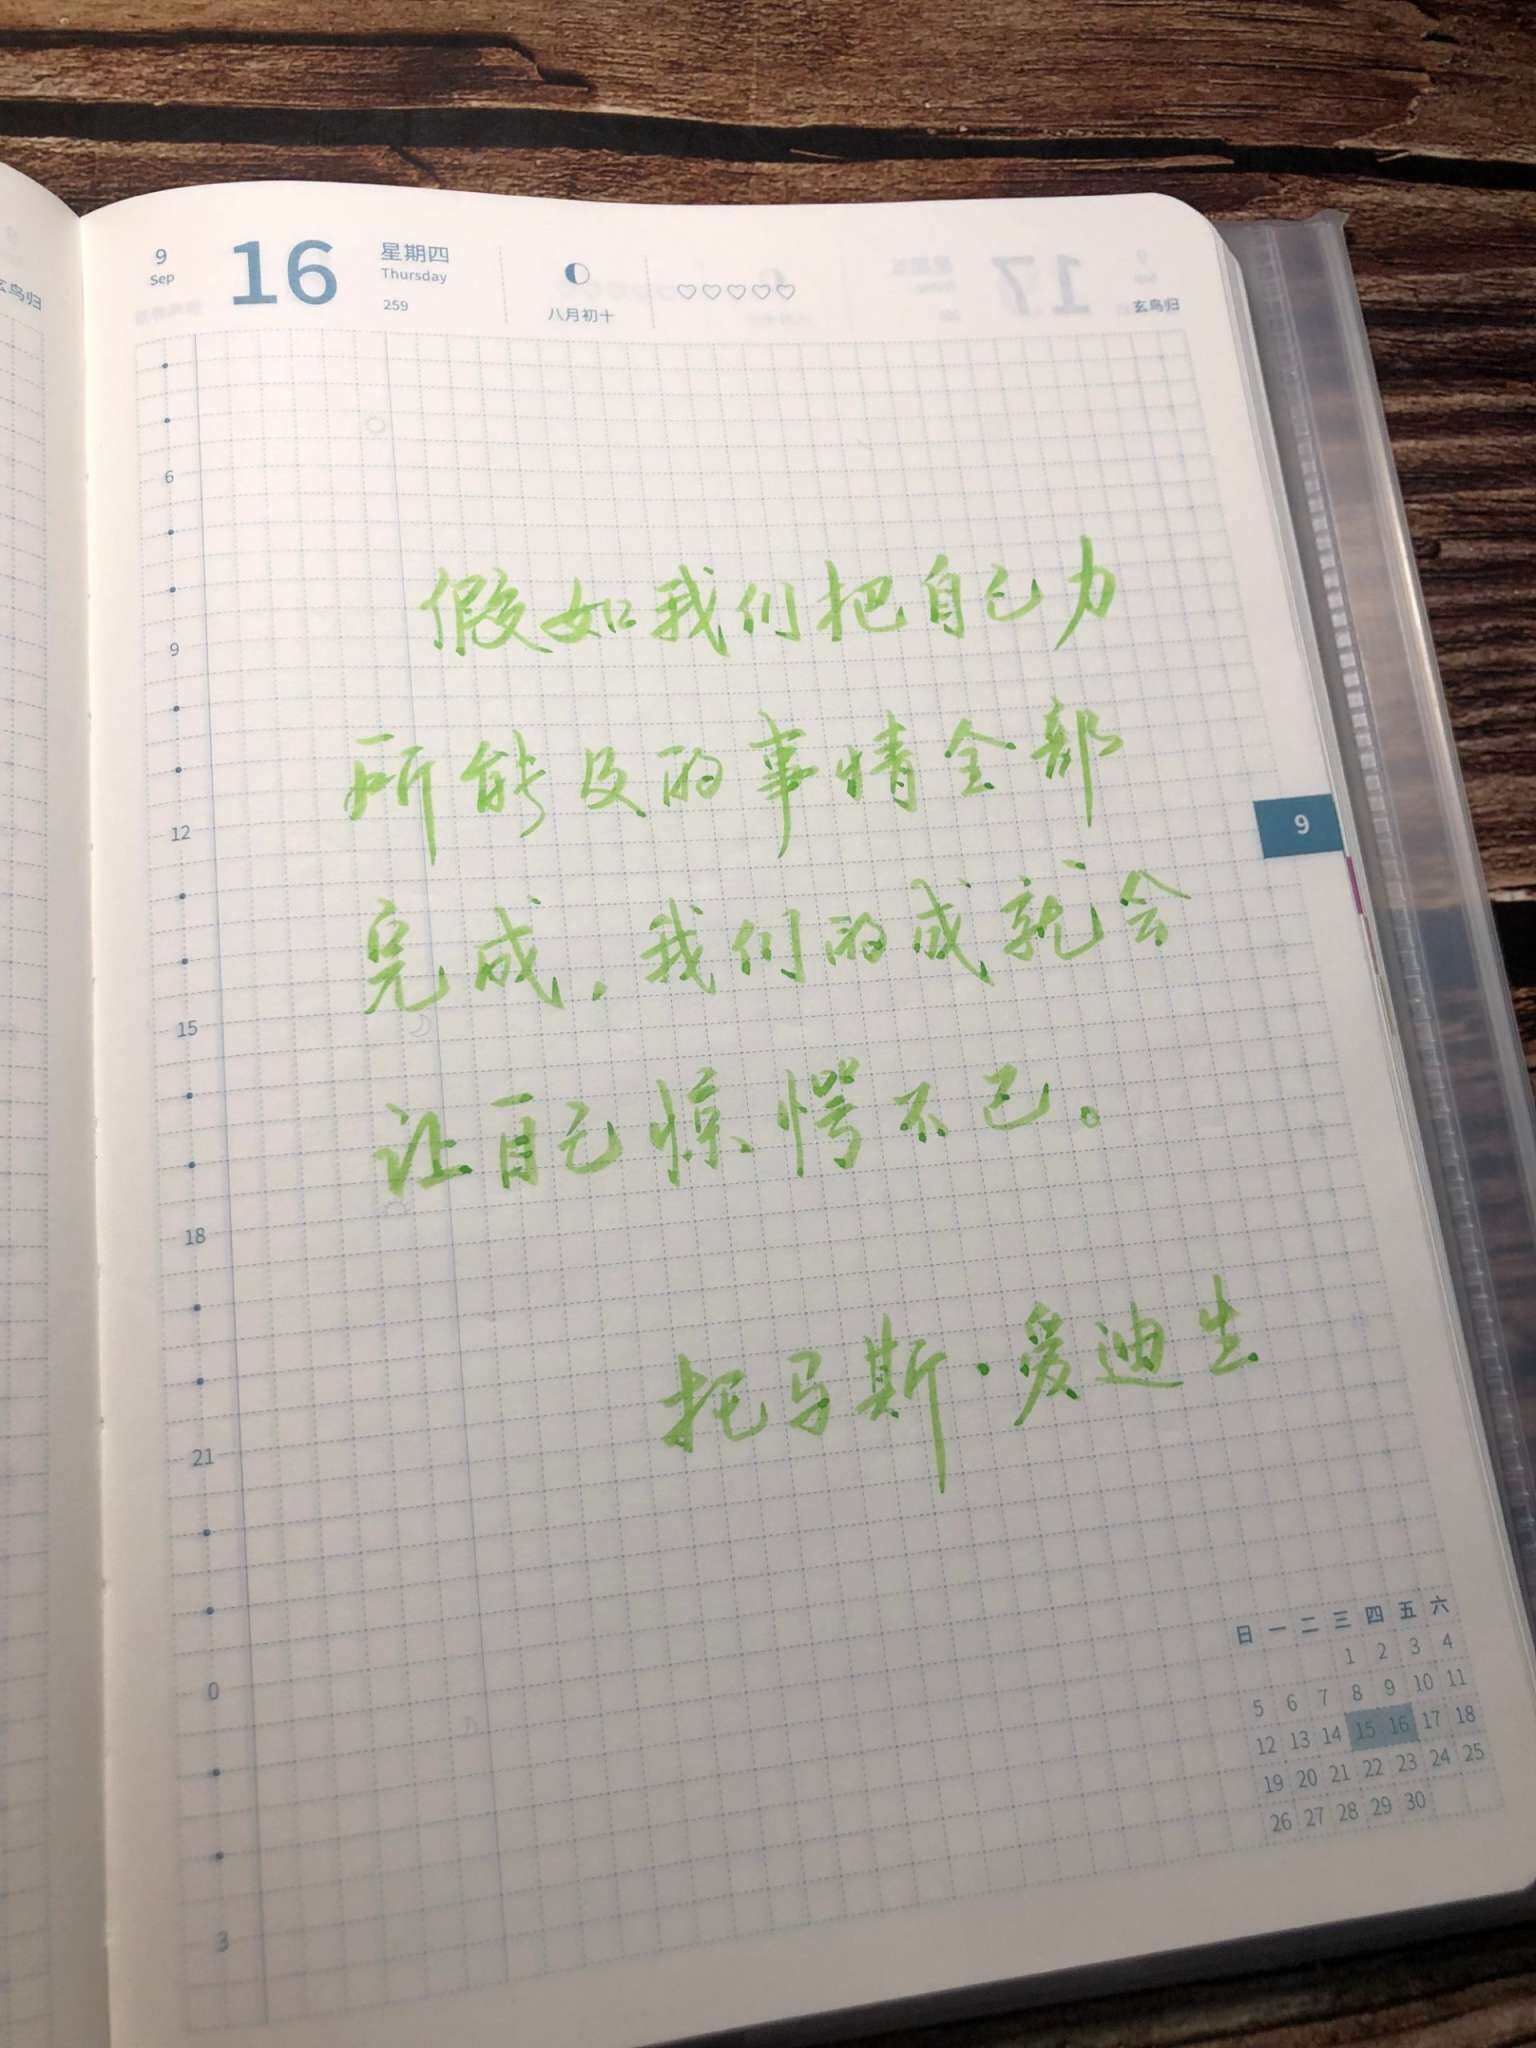 9
Sep
16
星期四
Thursday
259
八月初十
玄鸟归
玄鸟归
6
9
12
15
18
21
0
3
假如我们把自己力
所能及的事情全部
完成，我们的成就会
让自己惊愕不已。
托马斯·爱迪生
9
日 一 二 三 四 五 六
1 2 3 4
5 6 7 8 9 10 11
12 13 14 15 16 17 18
19 20 21 22 23 24 25
26 27 28 29 30